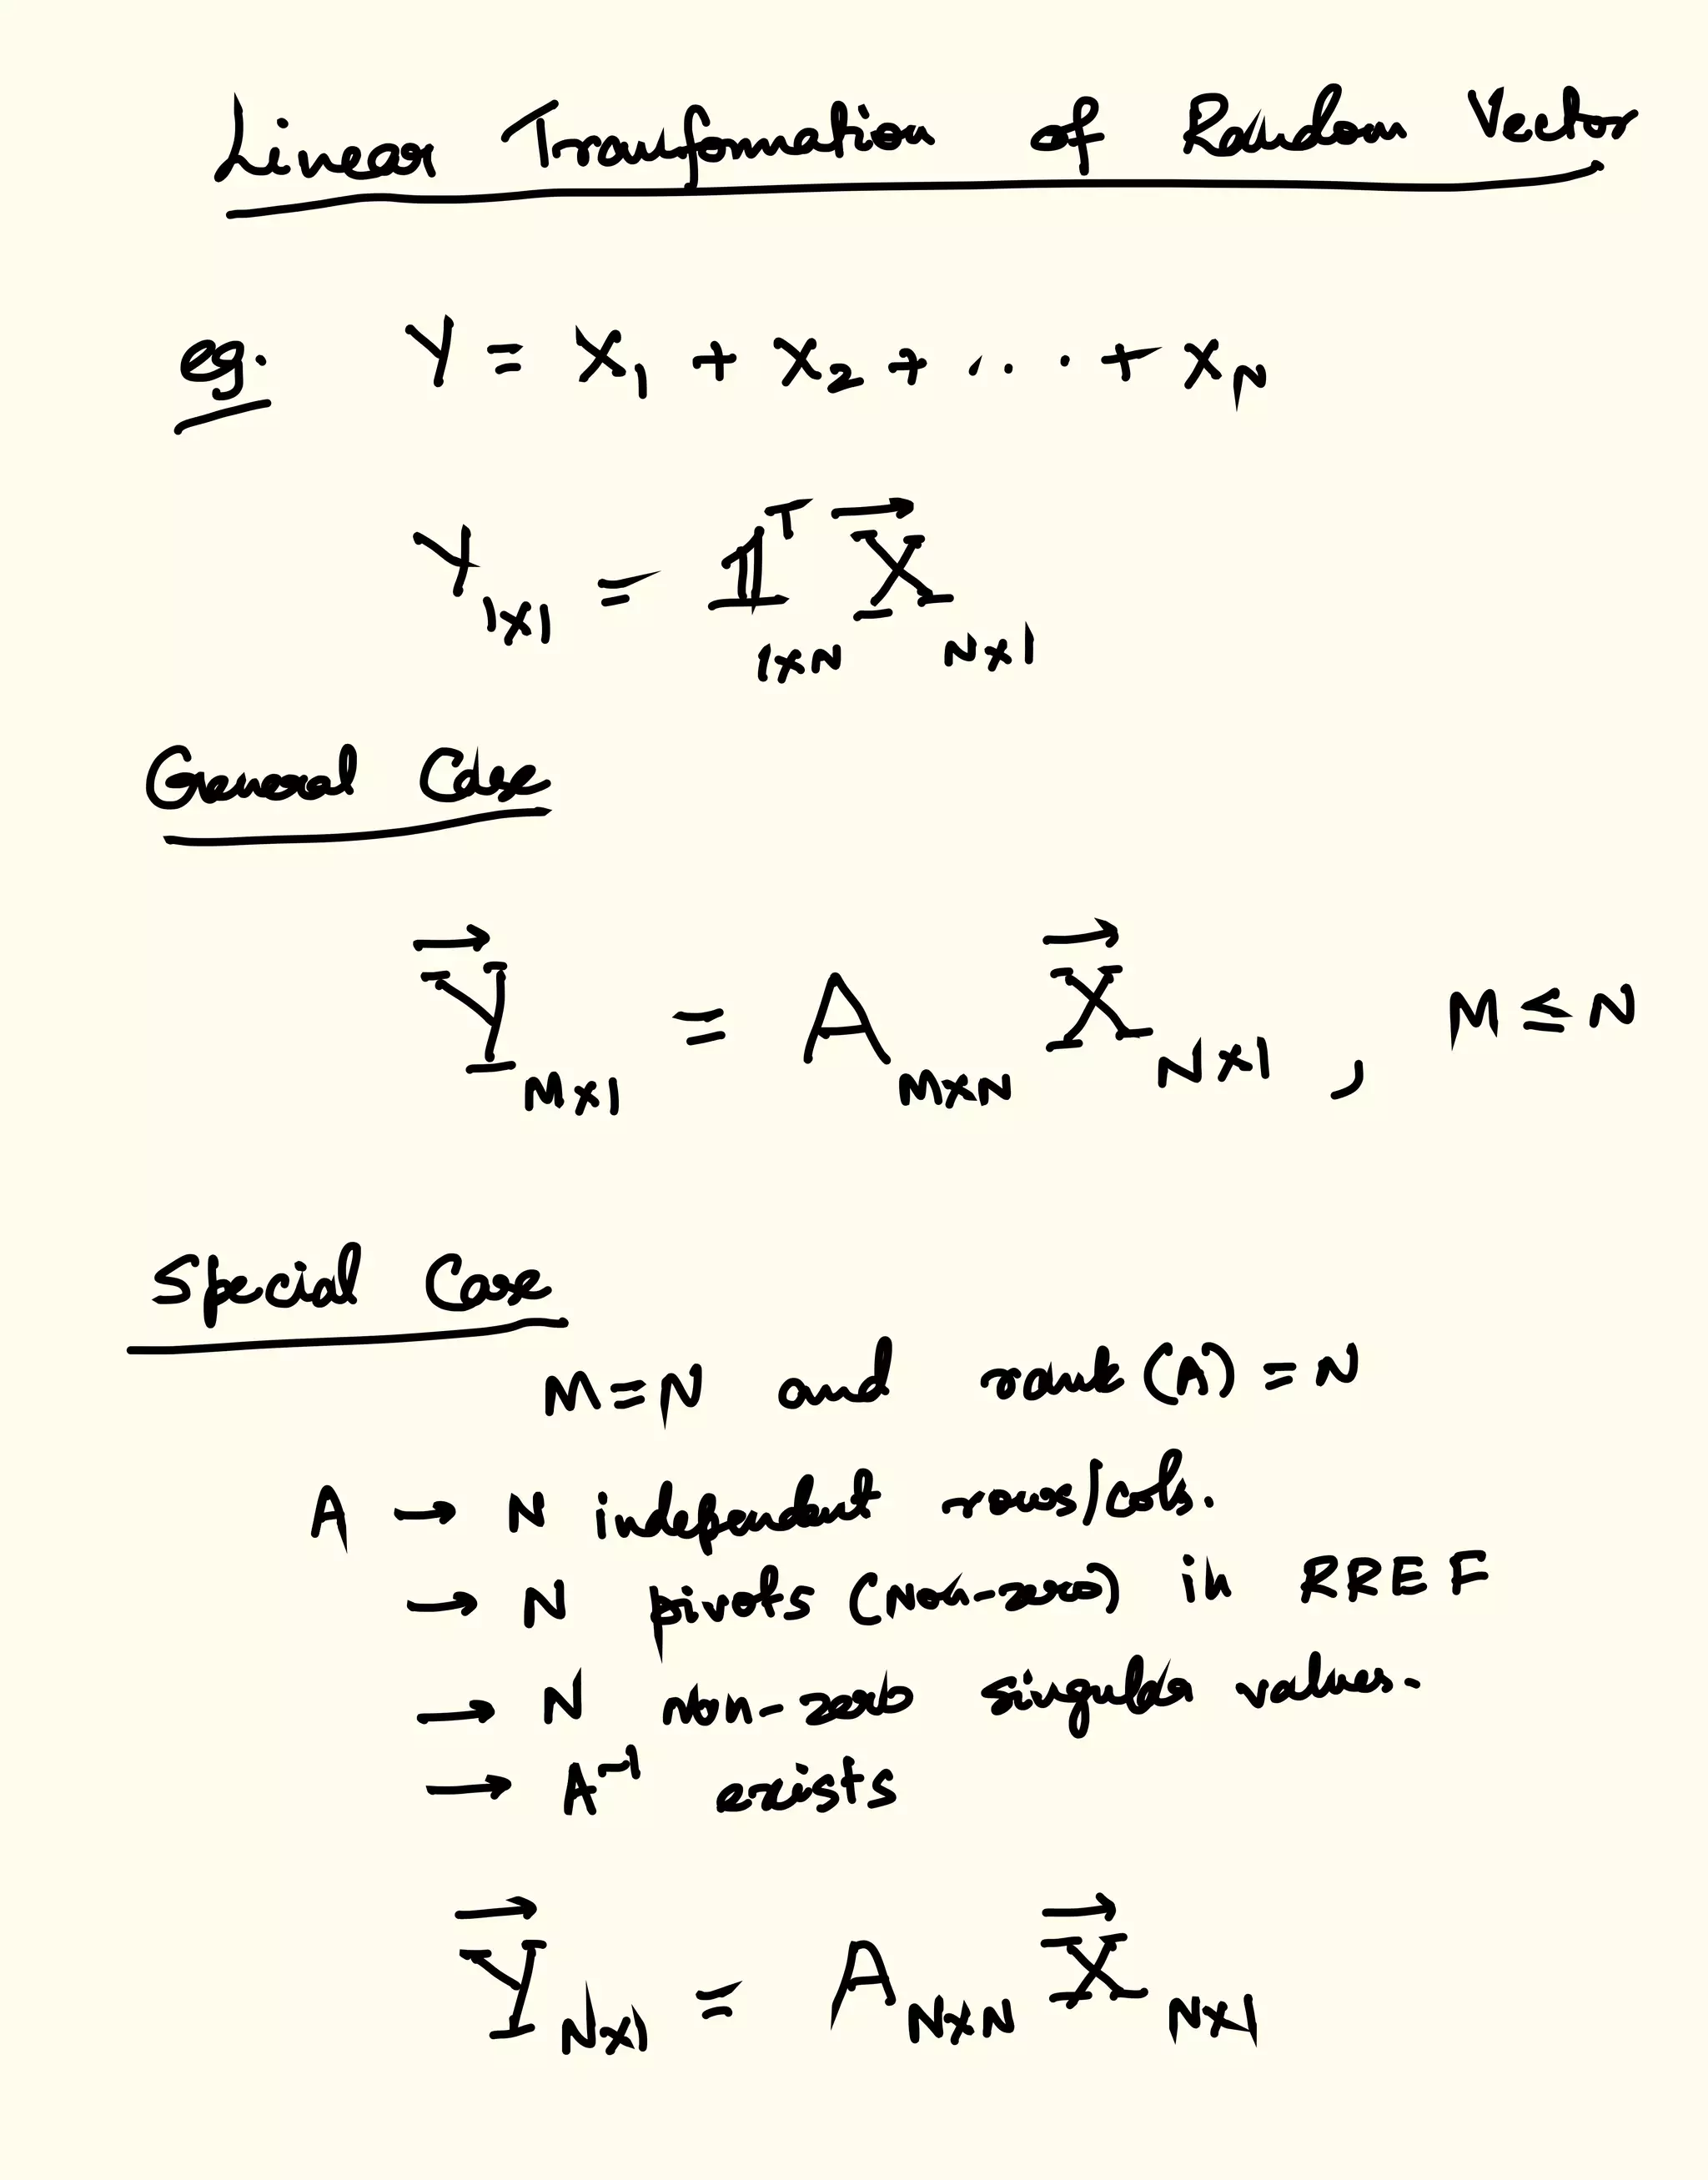 Linear Transformation of Random Vector
eg. Y = X₁ + X₂ + . . . + X_N
Y_{1×1} = 𝟙^T_{1×N} \vec{X}_{N×1}
General Case
\vec{Y}_{M×1} = A_{M×N} \vec{X}_{N×1} , M ≤ N
Special Case
M = N and rank (A) = N
A → N independent rows/cols.
→ N pivots (Non-zero) in RREF
→ N non-zero singular values.
→ A⁻¹ exists
\vec{Y}_{N×1} = A_{N×N} \vec{X}_{N×1}